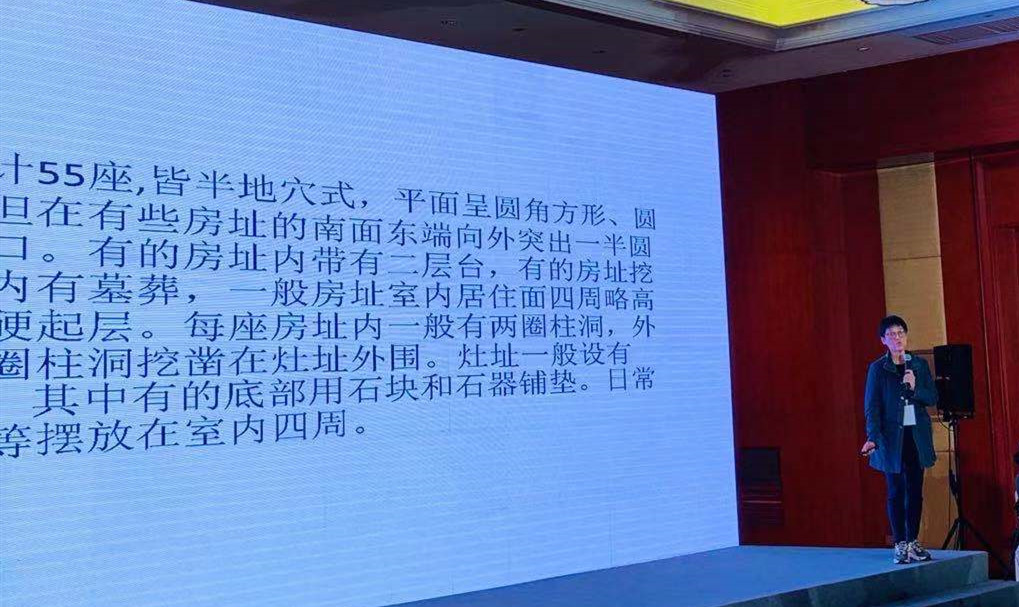 计55座,皆半地穴式，平面呈圆角方形、圆
但在有些房址的南面东端向外突出一半圆
口。有的房址内带有二层台，有的房址挖
内有墓葬，一般房址室内居住面四周略高
硬起层。每座房址内一般有两圈柱洞，外
圈柱洞挖凿在灶址外围。灶址一般设有
其中有的底部用石块和石器铺垫。日常
等摆放在室内四周。